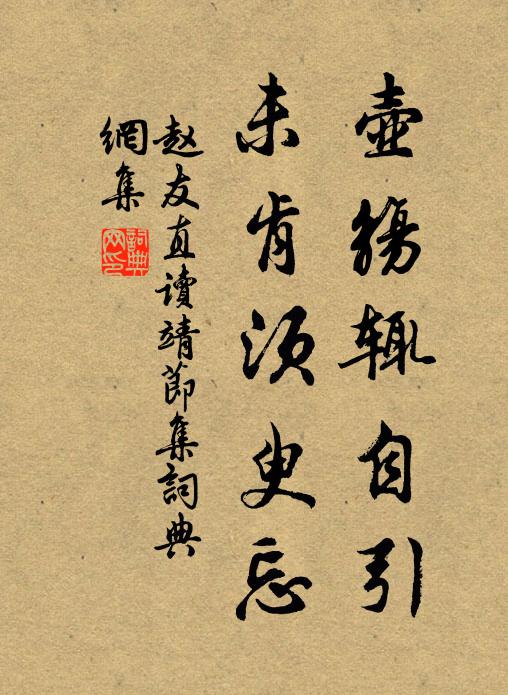 壺觴辄自引
未肯須臾忘
赵友直讀靖節集詞典
網集
詞典
网印